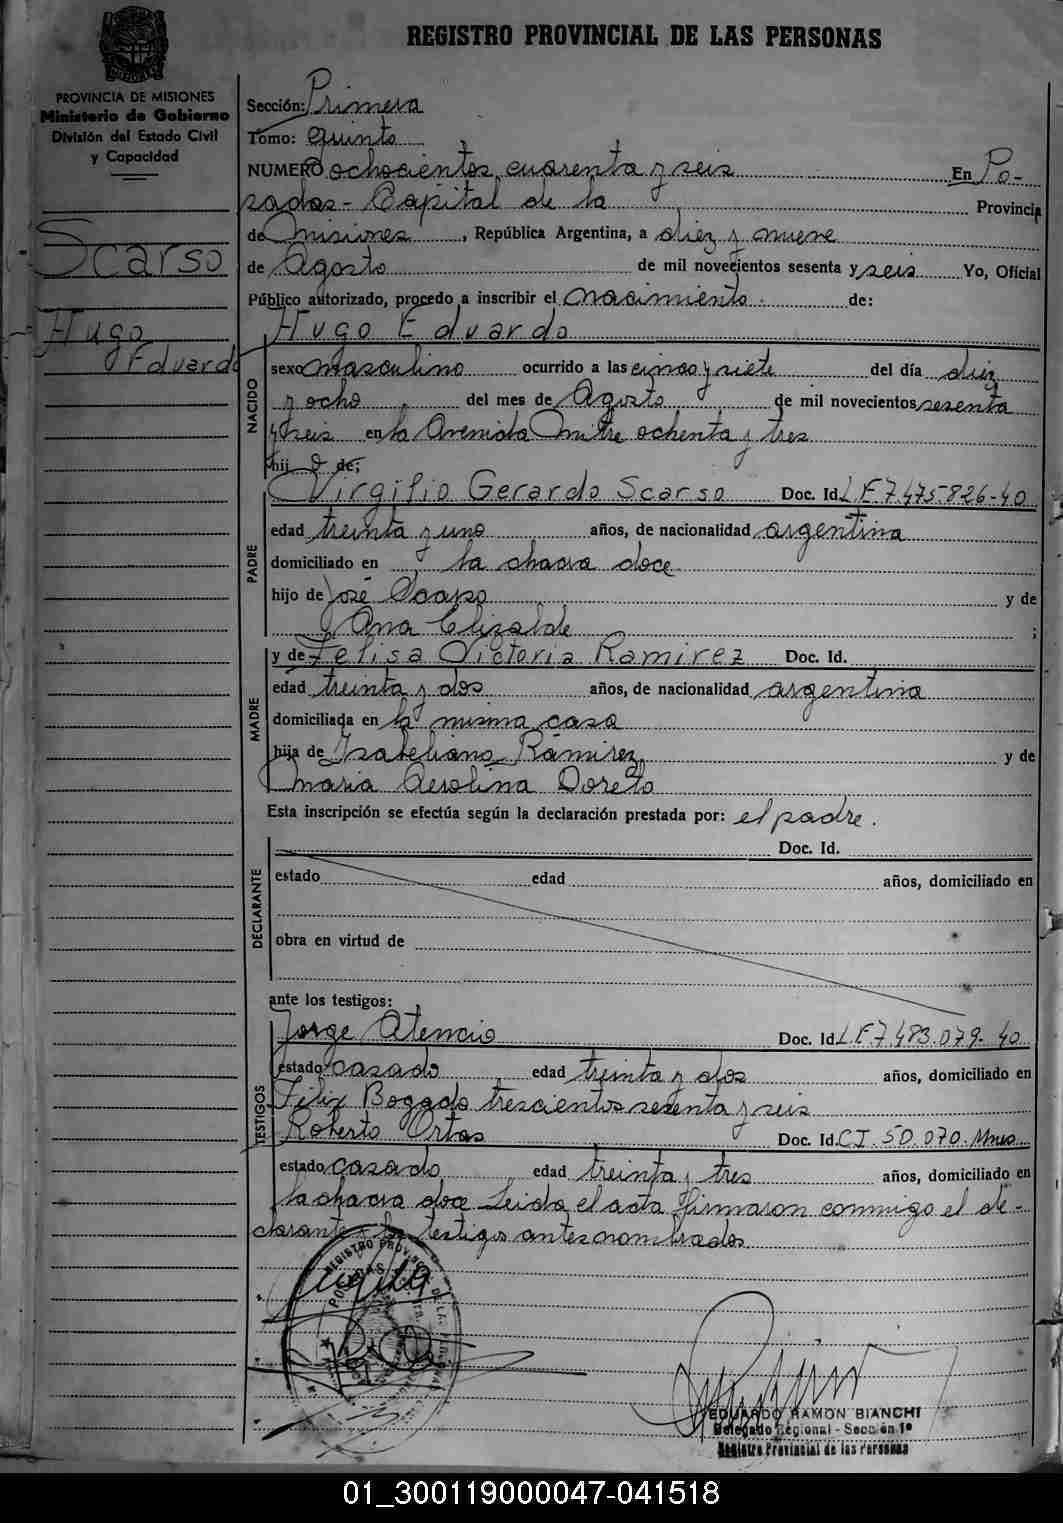 REGISTRO PROVINCIAL DE LAS PERSONAS
PROVINCIA DE MISIONES
Ministerio de Gobierno
División del Estado Civil
y Capacidad
Scarso
Hugo
Eduardo
Sección: Primera
Tomo: quinto
NUMERO ochocientos cuarenta y seis En Po-
sadas - Capital de la Provincia
de Misiones, República Argentina, a diez y nueve
de Agosto de mil novecientos sesenta y seis Yo, Oficial
Público autorizado, procedo a inscribir el nacimiento de:
Hugo Eduardo
NACIDO
sexo masculino ocurrido a las cinco y siete del día diez
y ocho del mes de Agosto de mil novecientos sesenta
y seis en la Avenida Mitre ochenta y tres
hijo de;
PADRE
Virgilio Gerardo Scarso Doc. Id. L.E 7.475.826-40
edad treinta y uno años, de nacionalidad argentina
domiciliado en la chacra doce
hijo de José Scarso y de
Ana Elizalde ;
MADRE
y de Felisa Victoria Ramirez Doc. Id.
edad treinta y dos años, de nacionalidad argentina
domiciliada en la misma casa
hija de Isabeliano Ramirez y de
Maria Doreto
Esta inscripción se efectúa según la declaración prestada por: el padre.
DECLARANTE
Doc. Id.
estado edad años, domiciliado en
obra en virtud de
ante los testigos:
TESTIGOS
Jorge Atencio Doc. Id. L.E 7.483.079-40
estado casado edad treinta y dos años, domiciliado en
Félix Bogado trescientos sesenta y seis
Roberto Ortas Doc. Id. C.I. 50.070 Mnes
estado casado edad treinta y tres años, domiciliado en
la chacra doce Leida el acta firmaron conmigo el de-
clarante y los testigos antes nombrados
REGISTRO PROVINCIAL DE LAS PERSONAS
POSADAS
EDUARDO RAMON BIANCHI
Delegado Regional - Sección 1ª
Registro Provincial de las Personas
01_300119000047-041518